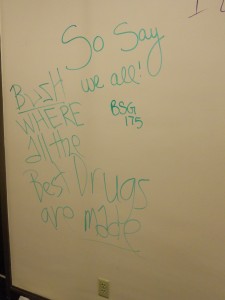 So Say
we all!
BSG
175
WHERE
all the
Best Drugs
are made